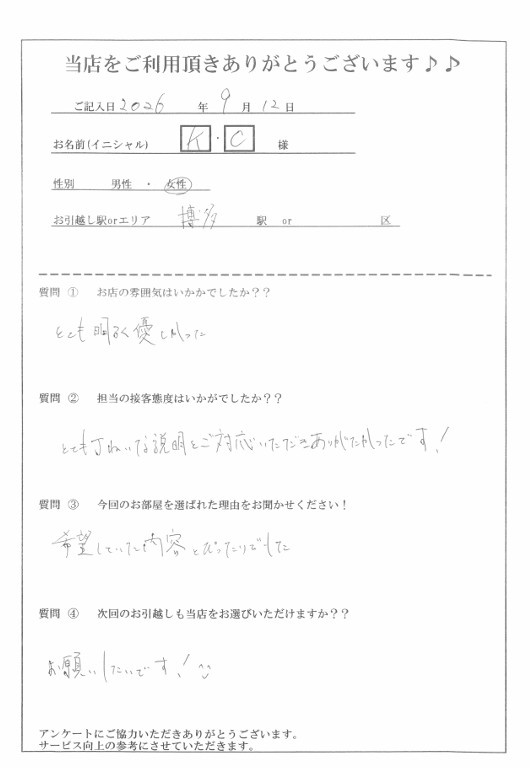 当店をご利用頂きありがとうございます♪♪
ご記入日2026 年 9 月 12 日
お名前(イニシャル) K・C 様
性別 男性 ・ 女性
お引越し駅orエリア 博多 駅 or 区
質問 ① お店の雰囲気はいかかでしたか？？
とても明るく優しかった
質問 ② 担当の接客態度はいかがでしたか？？
とても丁ねいな説明とご対応いただきありがたかったです！
質問 ③ 今回のお部屋を選ばれた理由をお聞かせください！
希望していた内容とぴったりでした
質問 ④ 次回のお引越しも当店をお選びいただけますか？？
お願いしたいです！
アンケートにご協力いただきありがとうございます。
サービス向上の参考にさせていただきます。